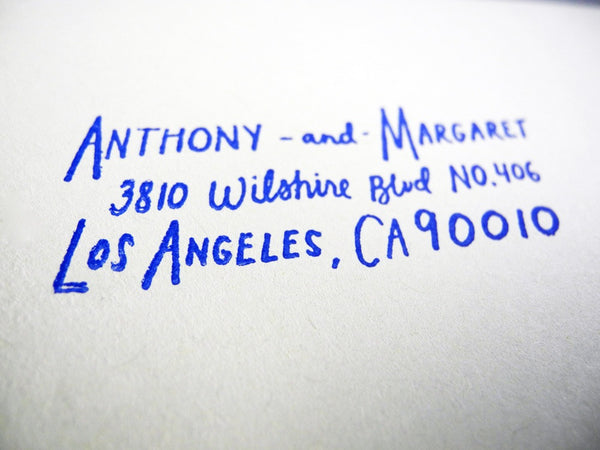 ANTHONY - and - MARGARET
3810 Wilshire Blvd NO. 406
LOS ANGELES, CA 90010